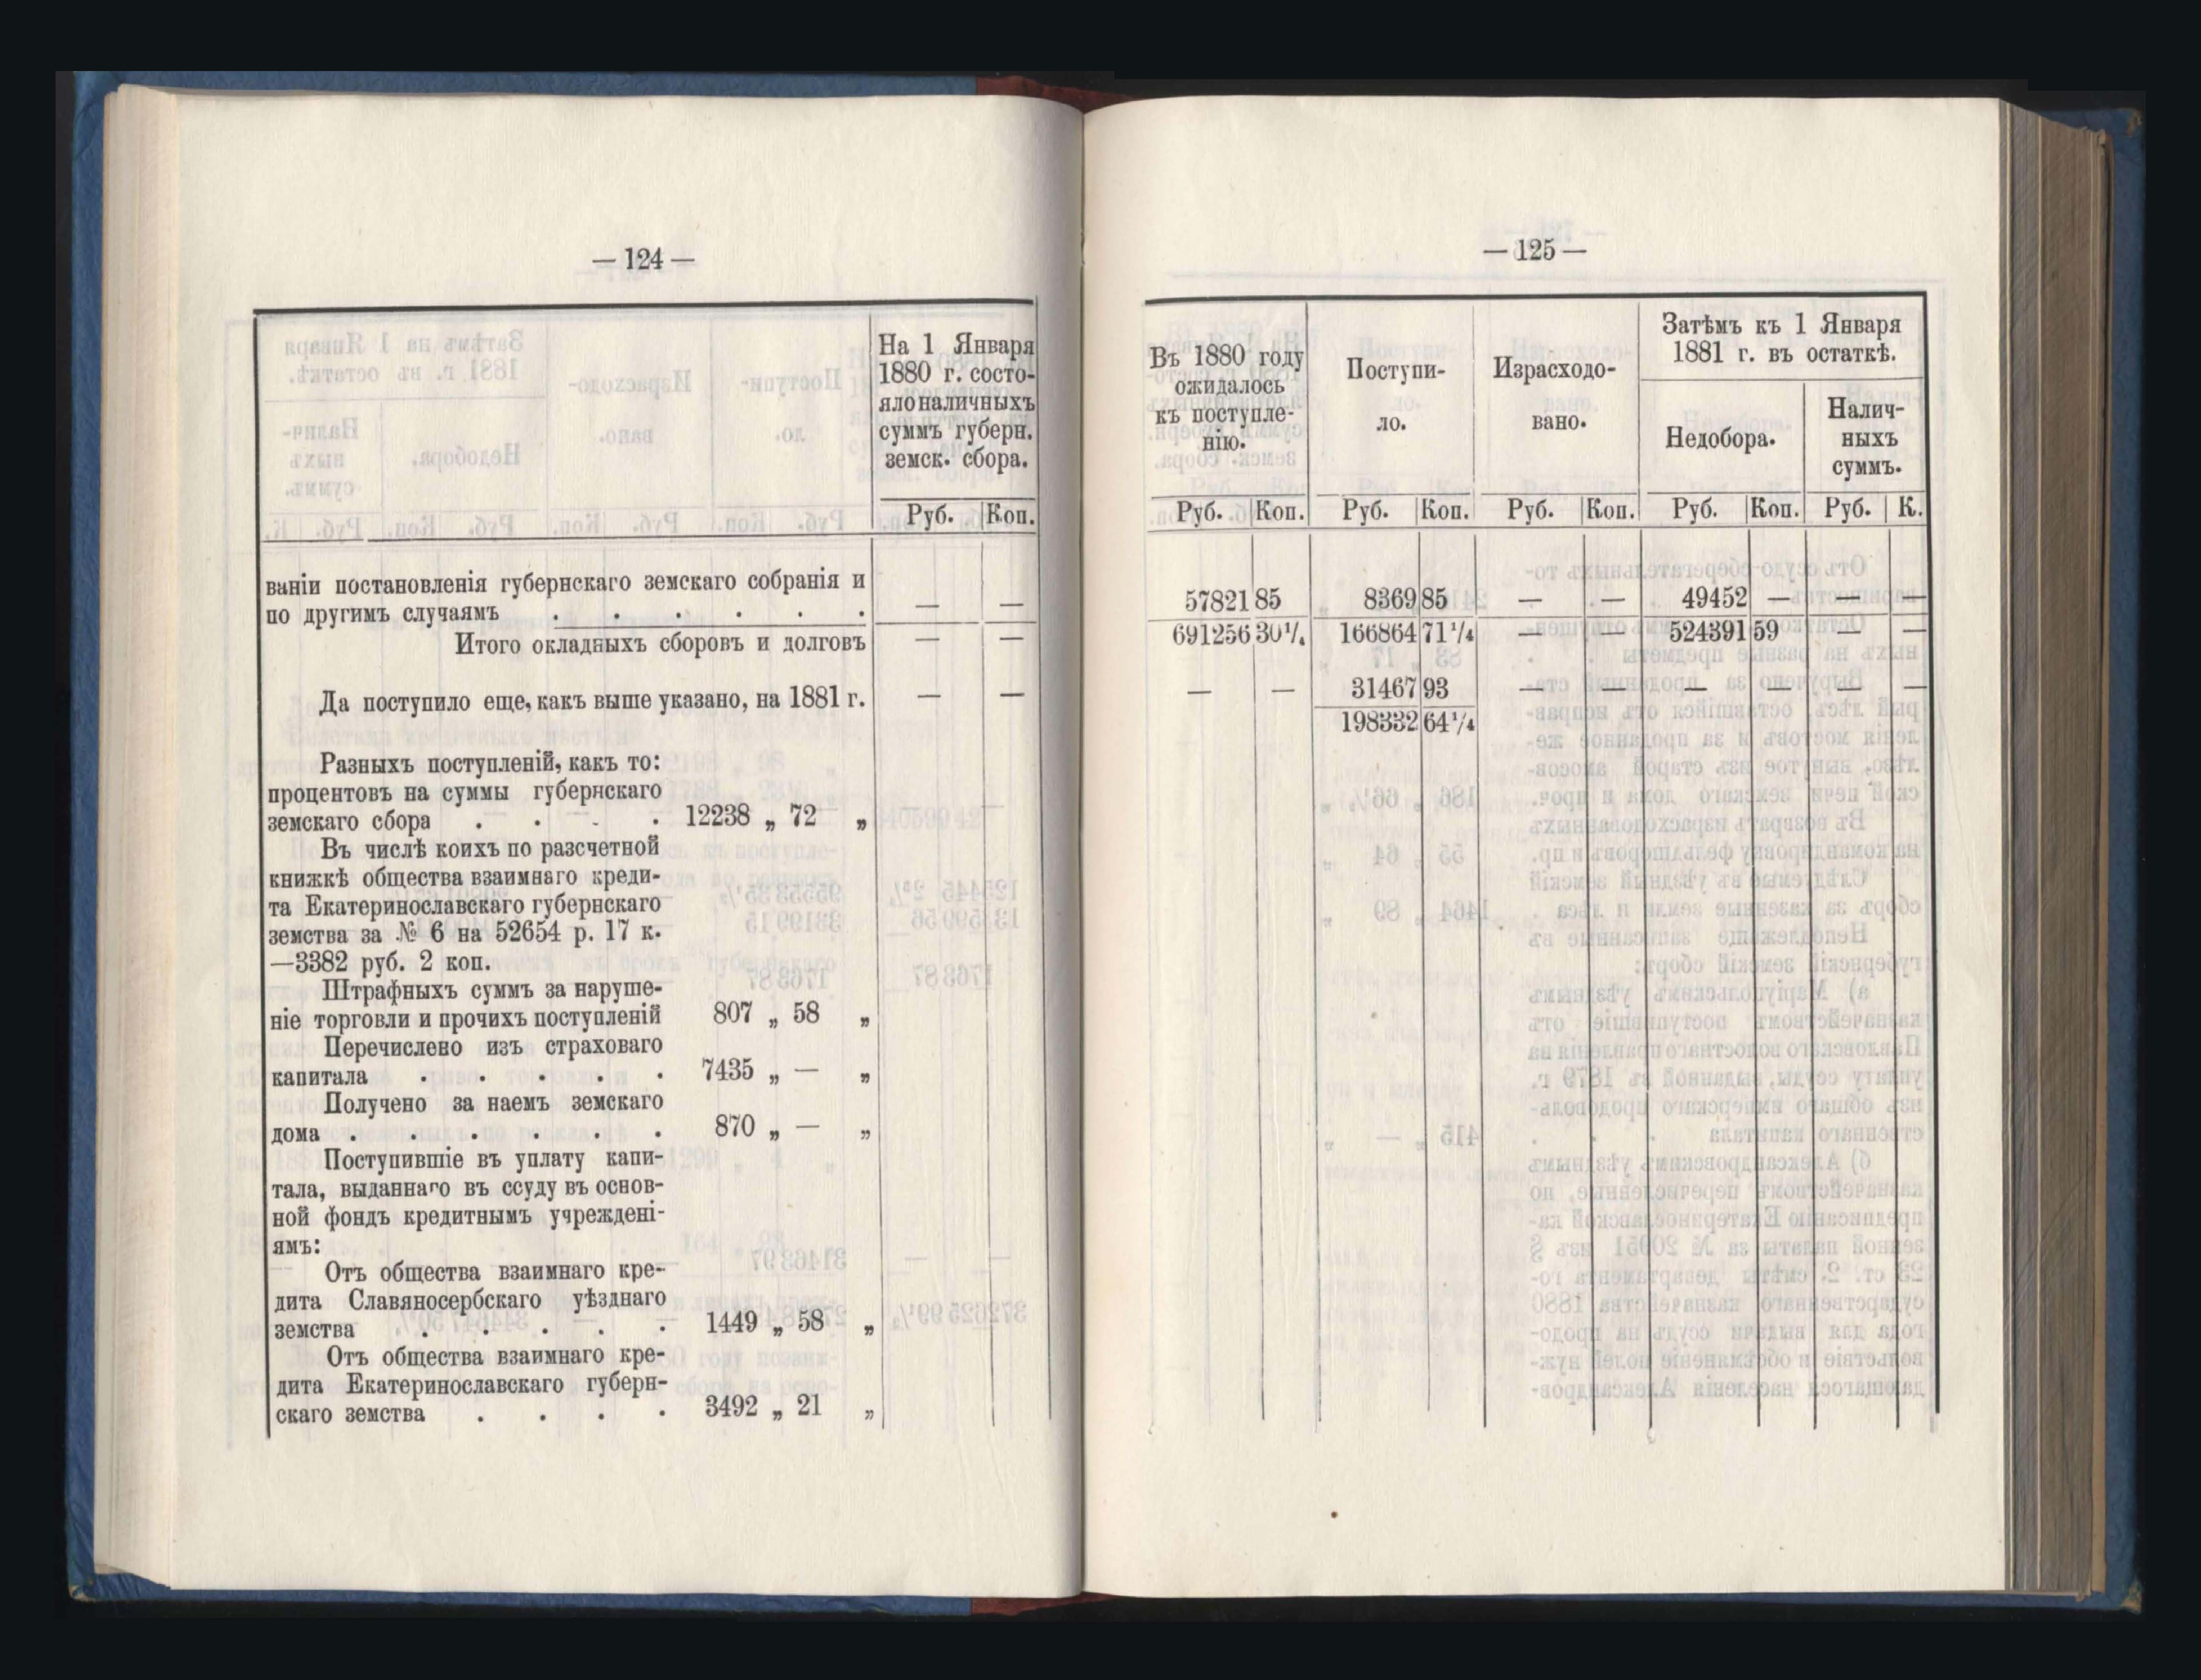 — 124 —
На 1 Января
1880 г. состо-
яло наличныхъ
суммъ губерн.
земск. сбора.
Руб. Коп.
ваніи постановленія губернскаго земскаго собранія и
по другимъ случаямъ . . . . . . — —
Итого окладныхъ сборовъ и долговъ — —
Да поступило еще, какъ выше указано, на 1881 г. — —
Разныхъ поступленій, какъ то:
процентовъ на суммы губернскаго
земскаго сбора . . . . 12238 „ 72 „
Въ числѣ коихъ по разсчетной
книжкѣ общества взаимнаго креди-
та Екатеринославскаго губернскаго
земства за № 6 на 52654 р. 17 к.
—3382 руб. 2 коп.
Штрафныхъ суммъ за наруше-
ніе торговли и прочихъ поступленій 807 „ 58 „
Перечислено изъ страховаго
капитала . . . . . 7435 „ — „
Получено за наемъ земскаго
дома . . . . . . 870 „ — „
Поступившіе въ уплату капи-
тала, выданнаго въ ссуду въ основ-
ной фондъ кредитнымъ учрежденi-
ямъ:
Отъ общества взаимнаго кре-
дита Славяносербскаго уѣзднаго
земства . . . . . 1449 „ 58 „
Отъ общества взаимнаго кре-
дита Екатеринославскаго губерн-
скаго земства . . . . 3492 „ 21 „
— 125 —
Въ 1880 году
ожидалось
къ поступле-
нію.
Поступи-
ло.
Израсходо-
вано.
Затѣмъ къ 1 Января
1881 г. въ остаткѣ.
Недобора.
Налич-
ныхъ
суммъ.
Руб. Коп. Руб. Коп. Руб. Коп. Руб. Коп. Руб. К.
57821 85 8369 85 — — 49452 — — —
691256 30¼ 166864 71¼ — — 524391 59 — —
— — 31467 93 — — — — — —
198332 64¼